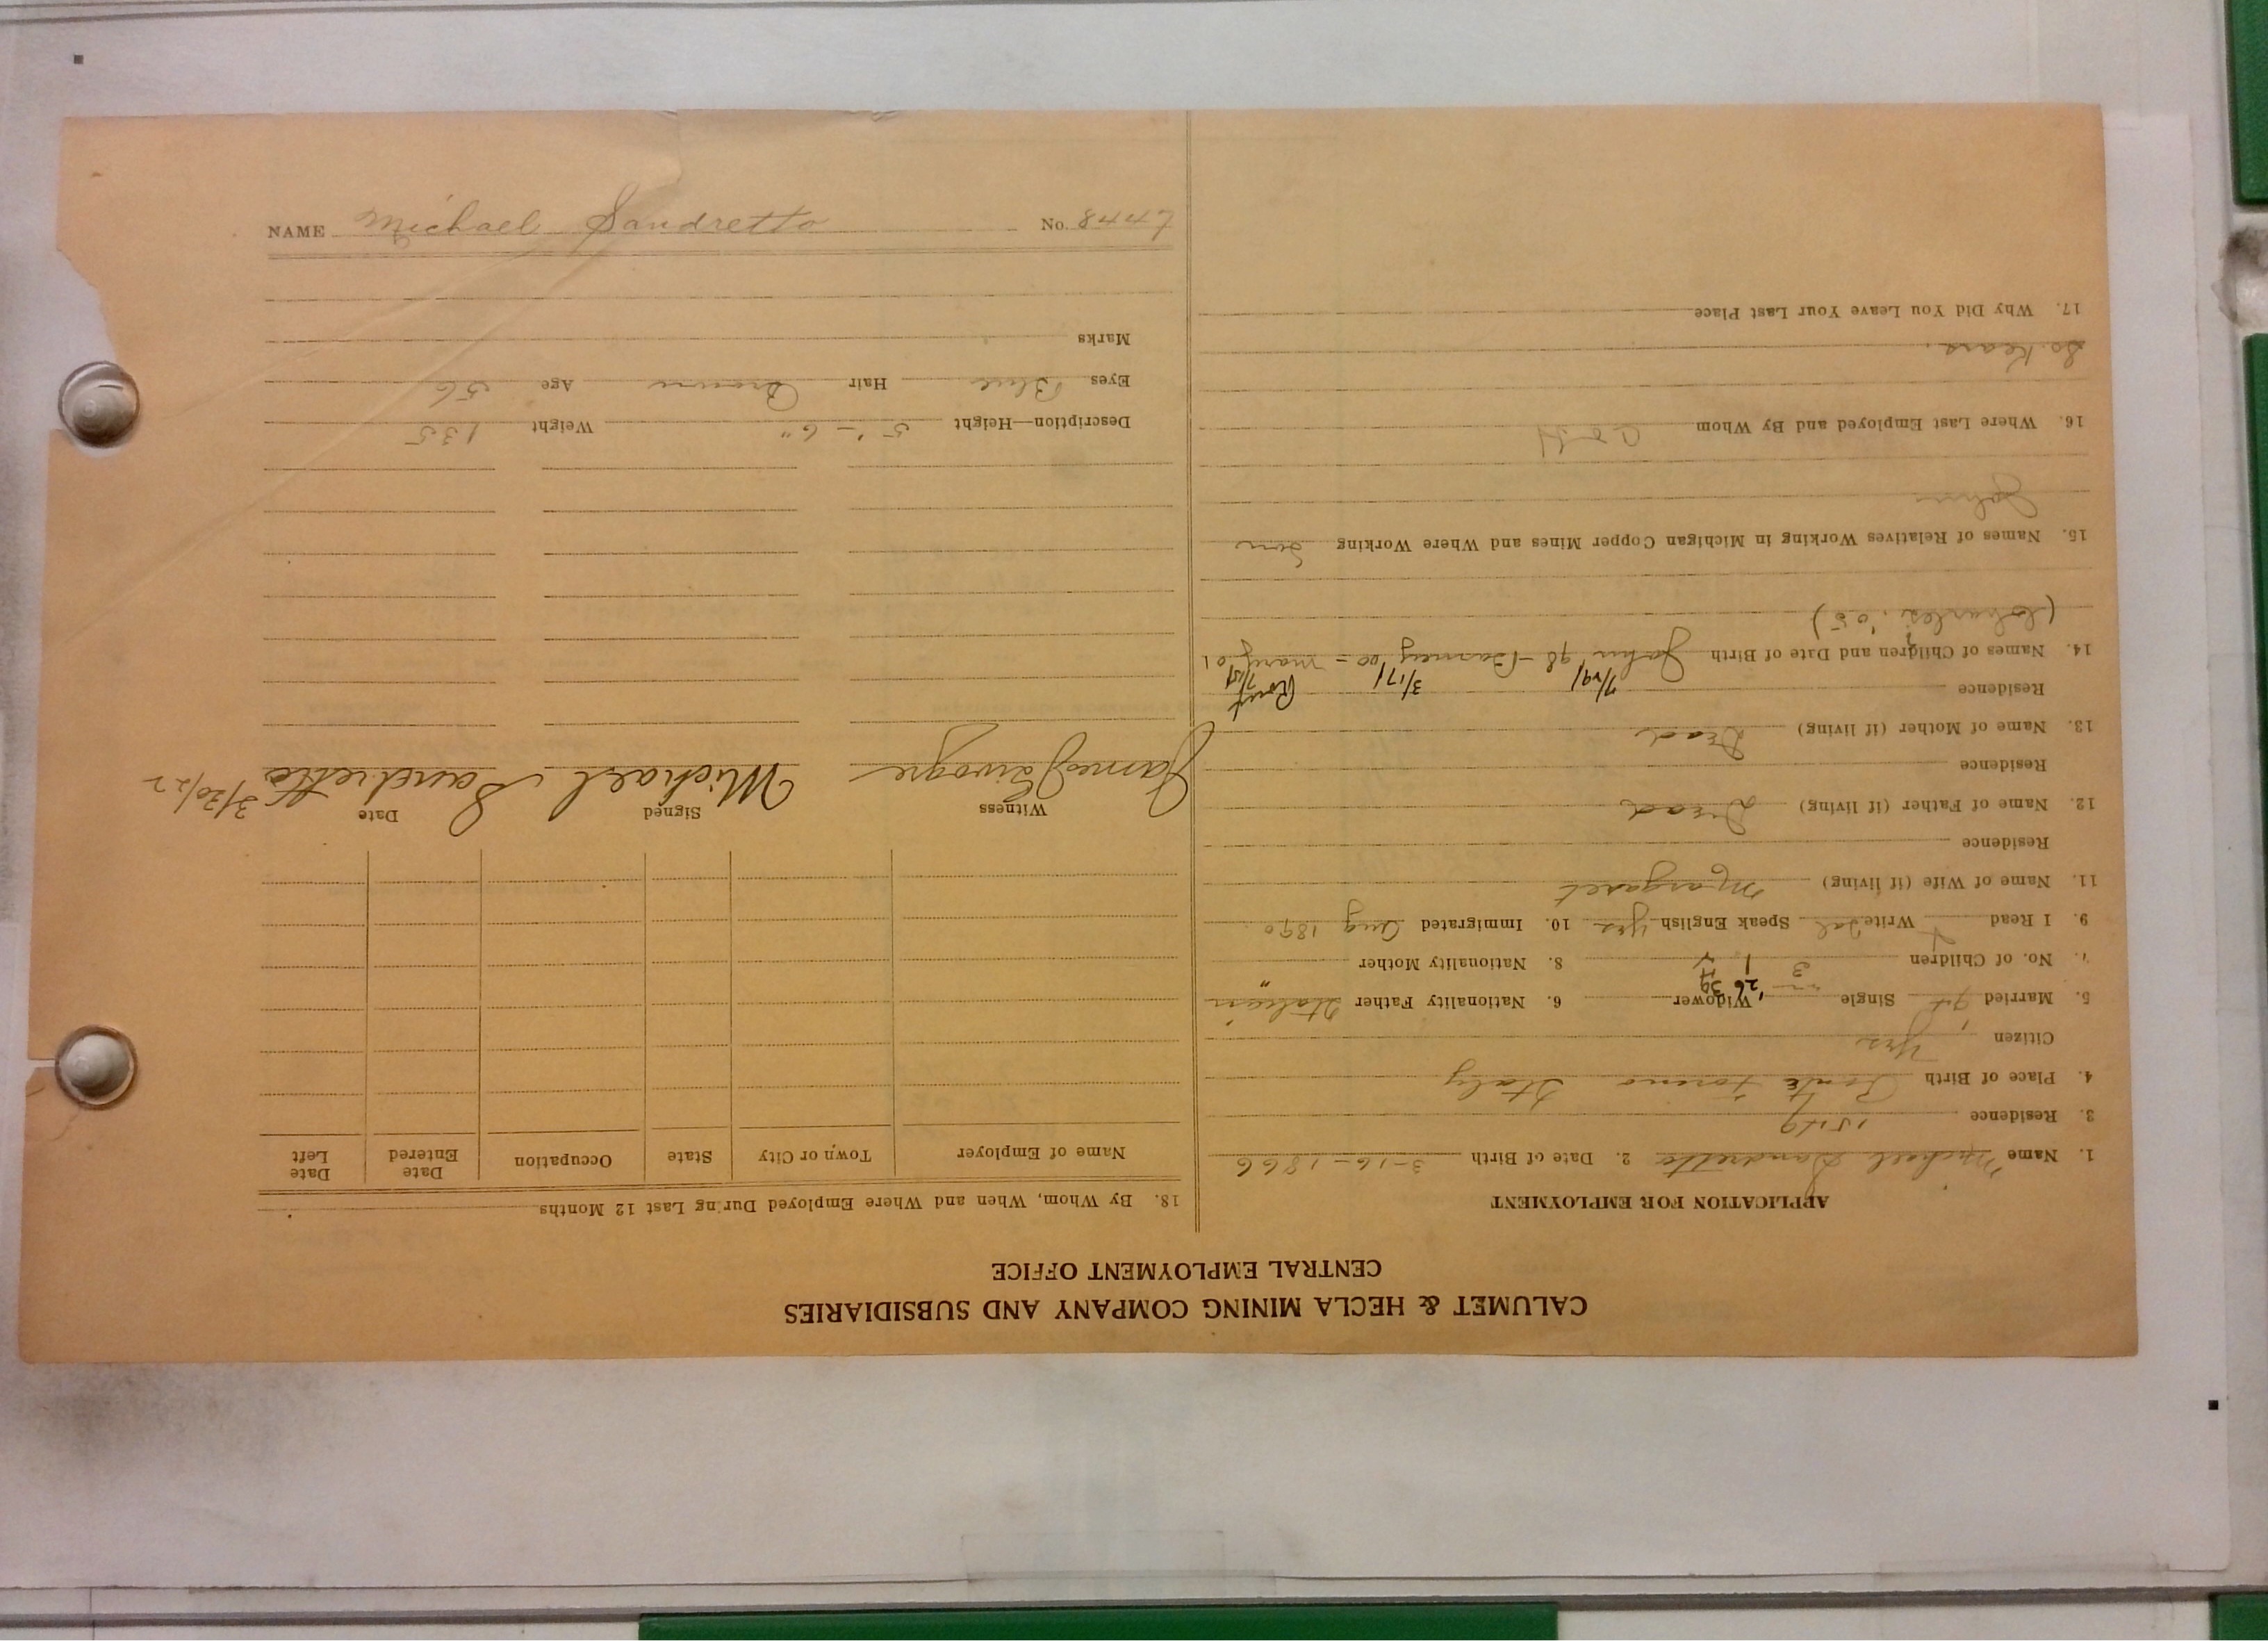 CALUMET & HECLA MINING COMPANY AND SUBSIDIARIES
CENTRAL EMPLOYMENT OFFICE
APPLICATION FOR EMPLOYMENT
1. Name Michael Sandretto 2. Date of Birth 3-16-1866
3. Residence 1549
4. Place of Birth Torino Italy
Citizen Yes
5. Married Single Widower 6. Nationality Father Italian
No. of Children 3 8. Nationality Mother "
9. I Read Write Ital Speak English Yes 10. Immigrated Aug 1890
11. Name of Wife (if living) Margaret
Residence
12. Name of Father (if living) Dead
Residence
13. Name of Mother (if living) Dead
Residence
14. Names of Children and Date of Birth John 98 - Barney 00 - Mary 01
(Charles, '05)
15. Names of Relatives Working in Michigan Copper Mines and Where Working Son
John
16. Where Last Employed and By Whom C & H
So. Kears.
17. Why Did You Leave Your Last Place
18. By Whom, When and Where Employed During Last 12 Months
Name of Employer Town or City State Occupation Date Entered Date Left
Witness Signed Date
James Michael Sandretto 3/30/22
Description—Height 5'-6" Weight 135
Eyes Blue Hair Brown Age 56
Marks
NAME Michael Sandretto No. 8447